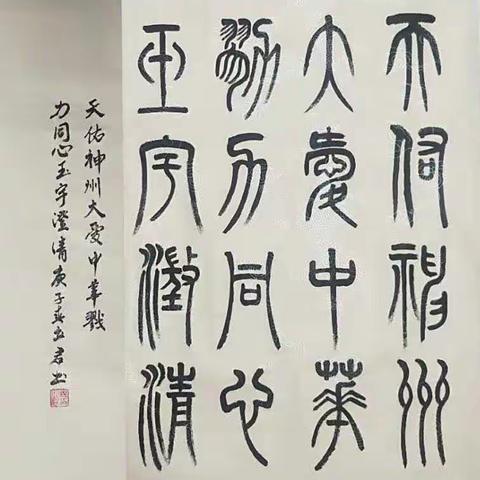 天佑神州
大愛中華
勠力同心
玉宇澂清
天佑神州大爱中華戮
力同心玉宇澄清庚子春君书